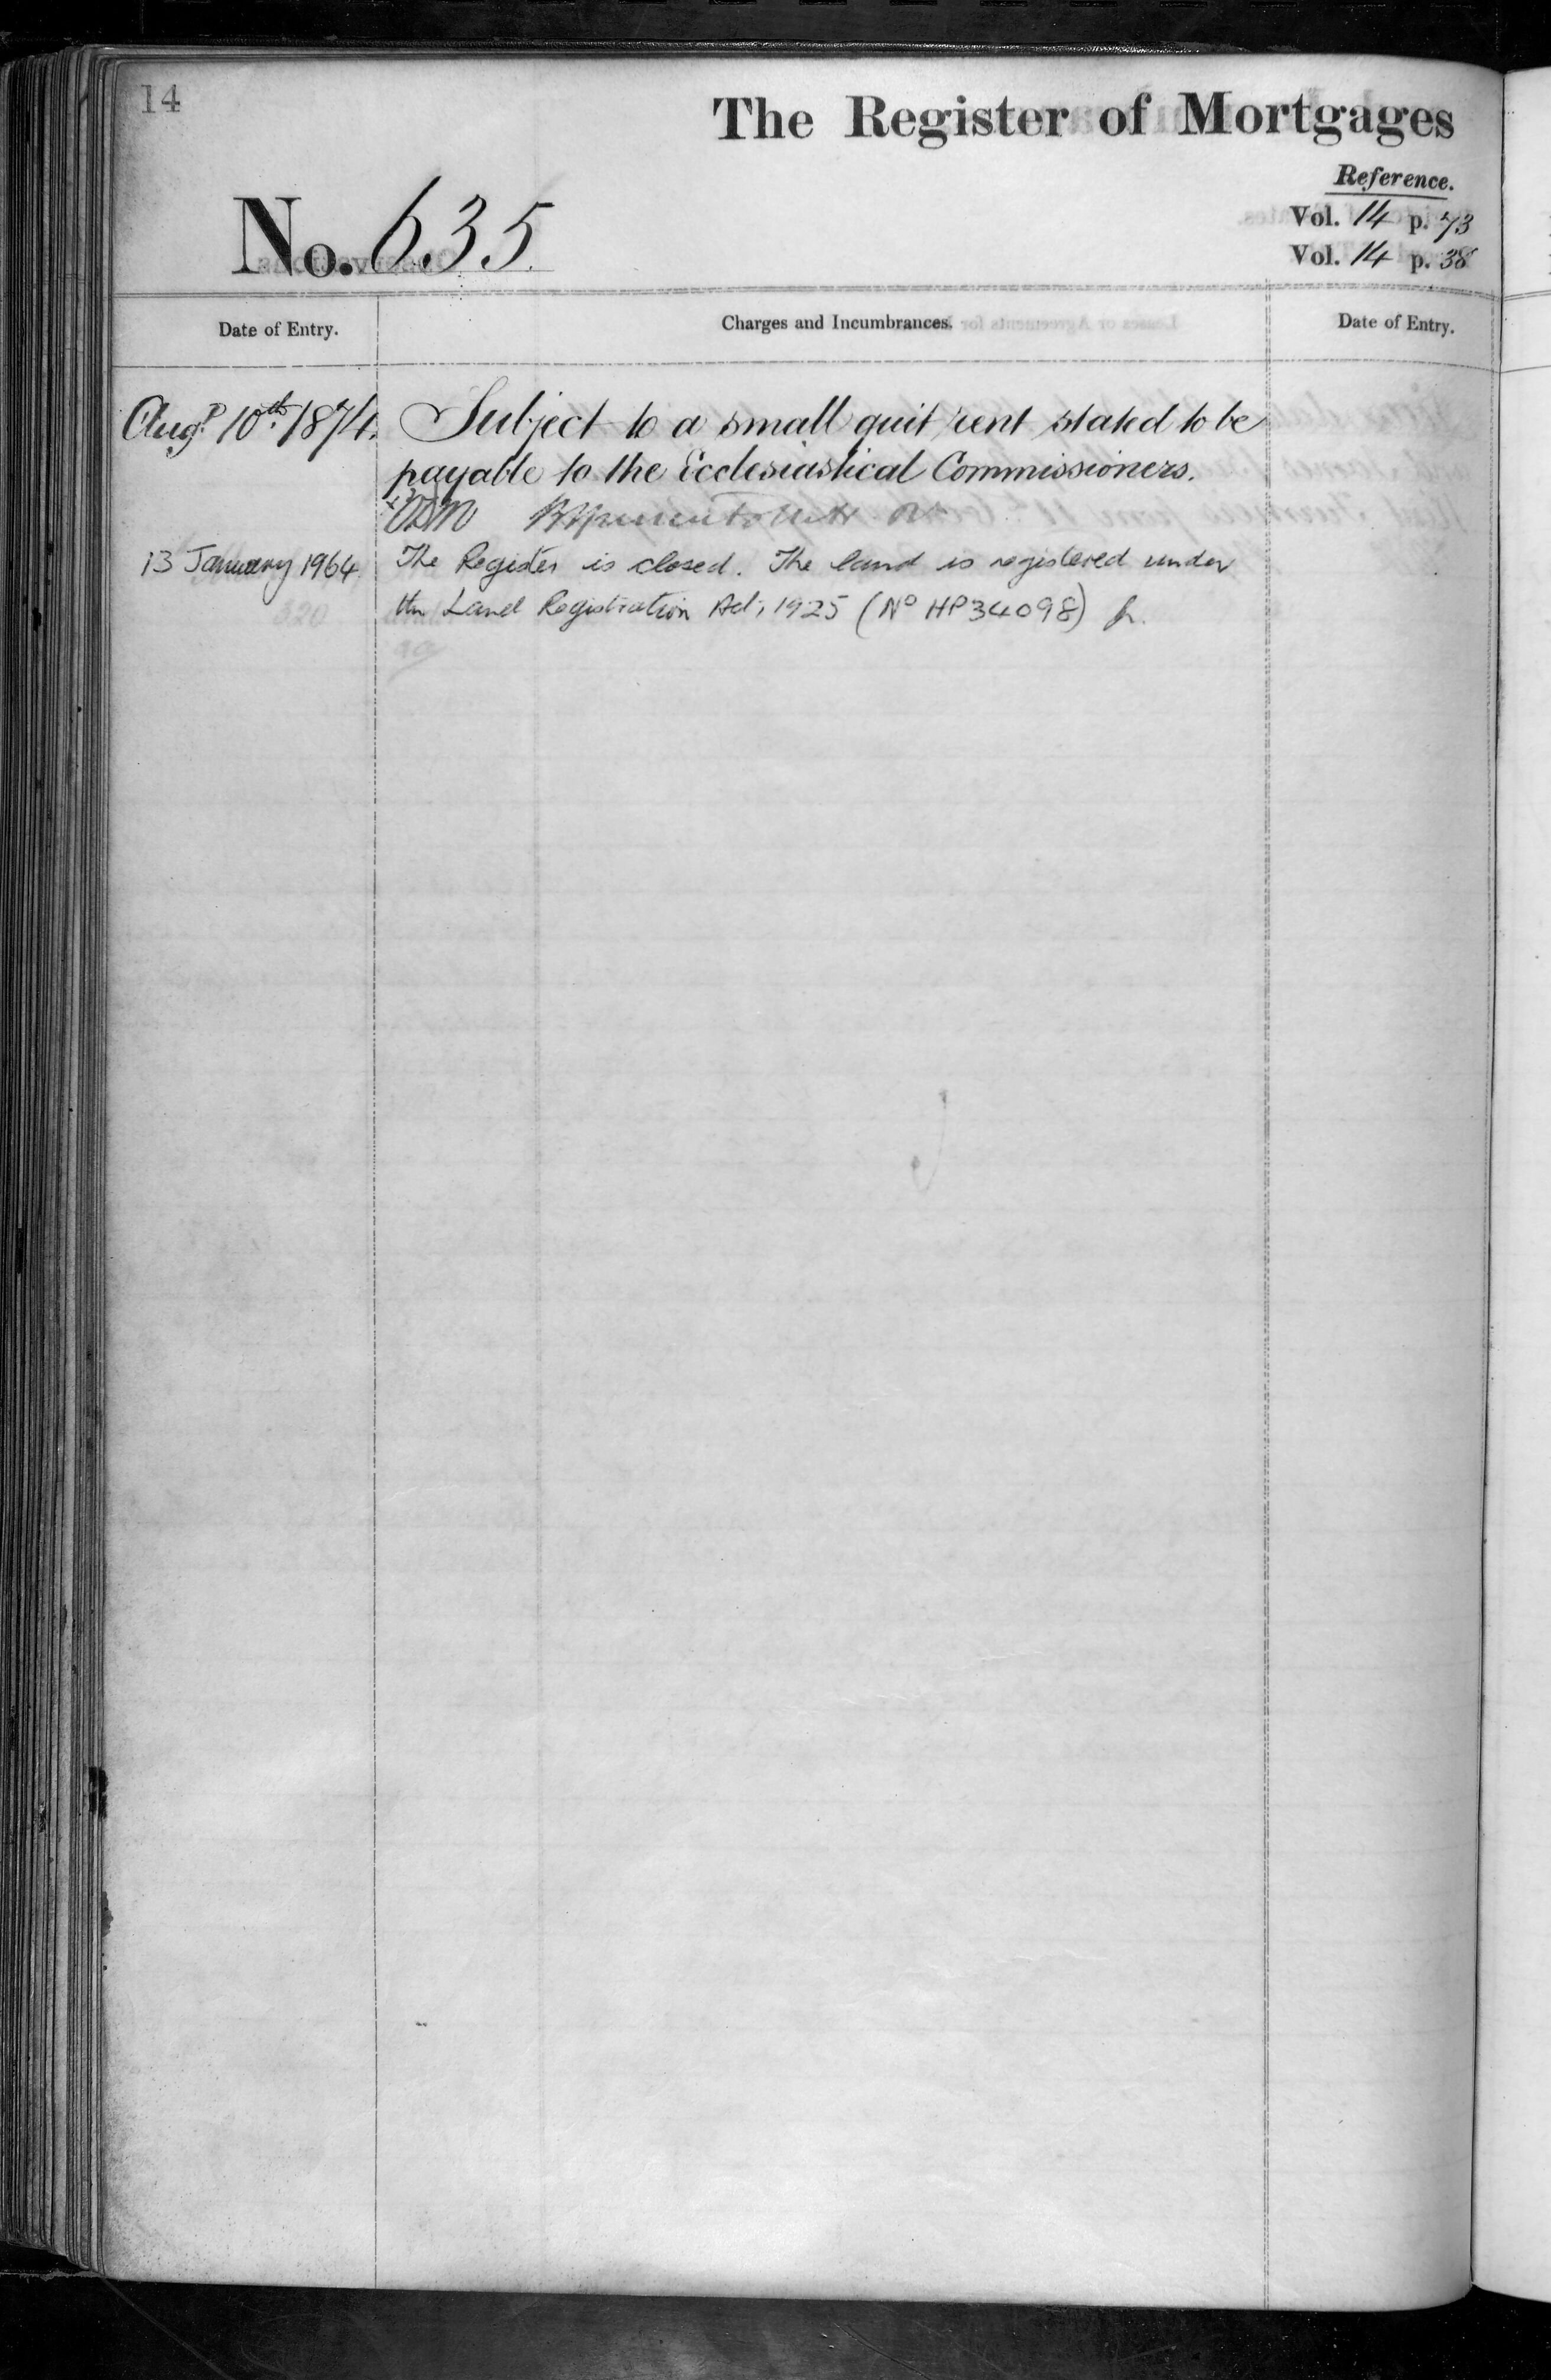 14
The Register of Mortgages
Reference.
Vol. 14 p. 73
Vol. 14 p. 38
No. 635
Date of Entry.
Charges and Incumbrances.
Date of Entry.
Augt 10th 1874. Subject to a small quit rent stated to be
payable to the Ecclesiastical Commissioners.
13 January 1964 The Register is closed. The land is registered under
the Land Registration Act, 1925 (No HP34098)